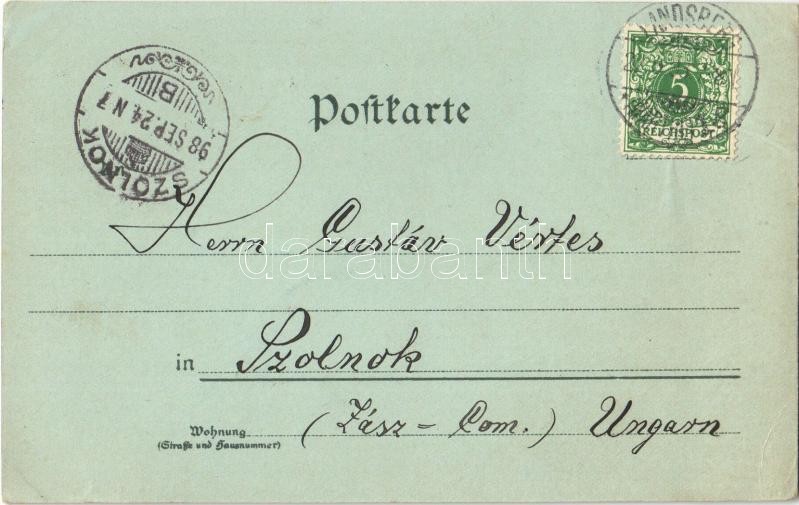 LANDSBERG
5
REICHSPOST
SZOLNOK
98 SEP. 24. N 7
B
Postkarte
Herrn Gustáv Vértes
darabanth
in Szolnok
Wohnung
(Straße und Hausnummer)
(Jász - Com.) Ungarn